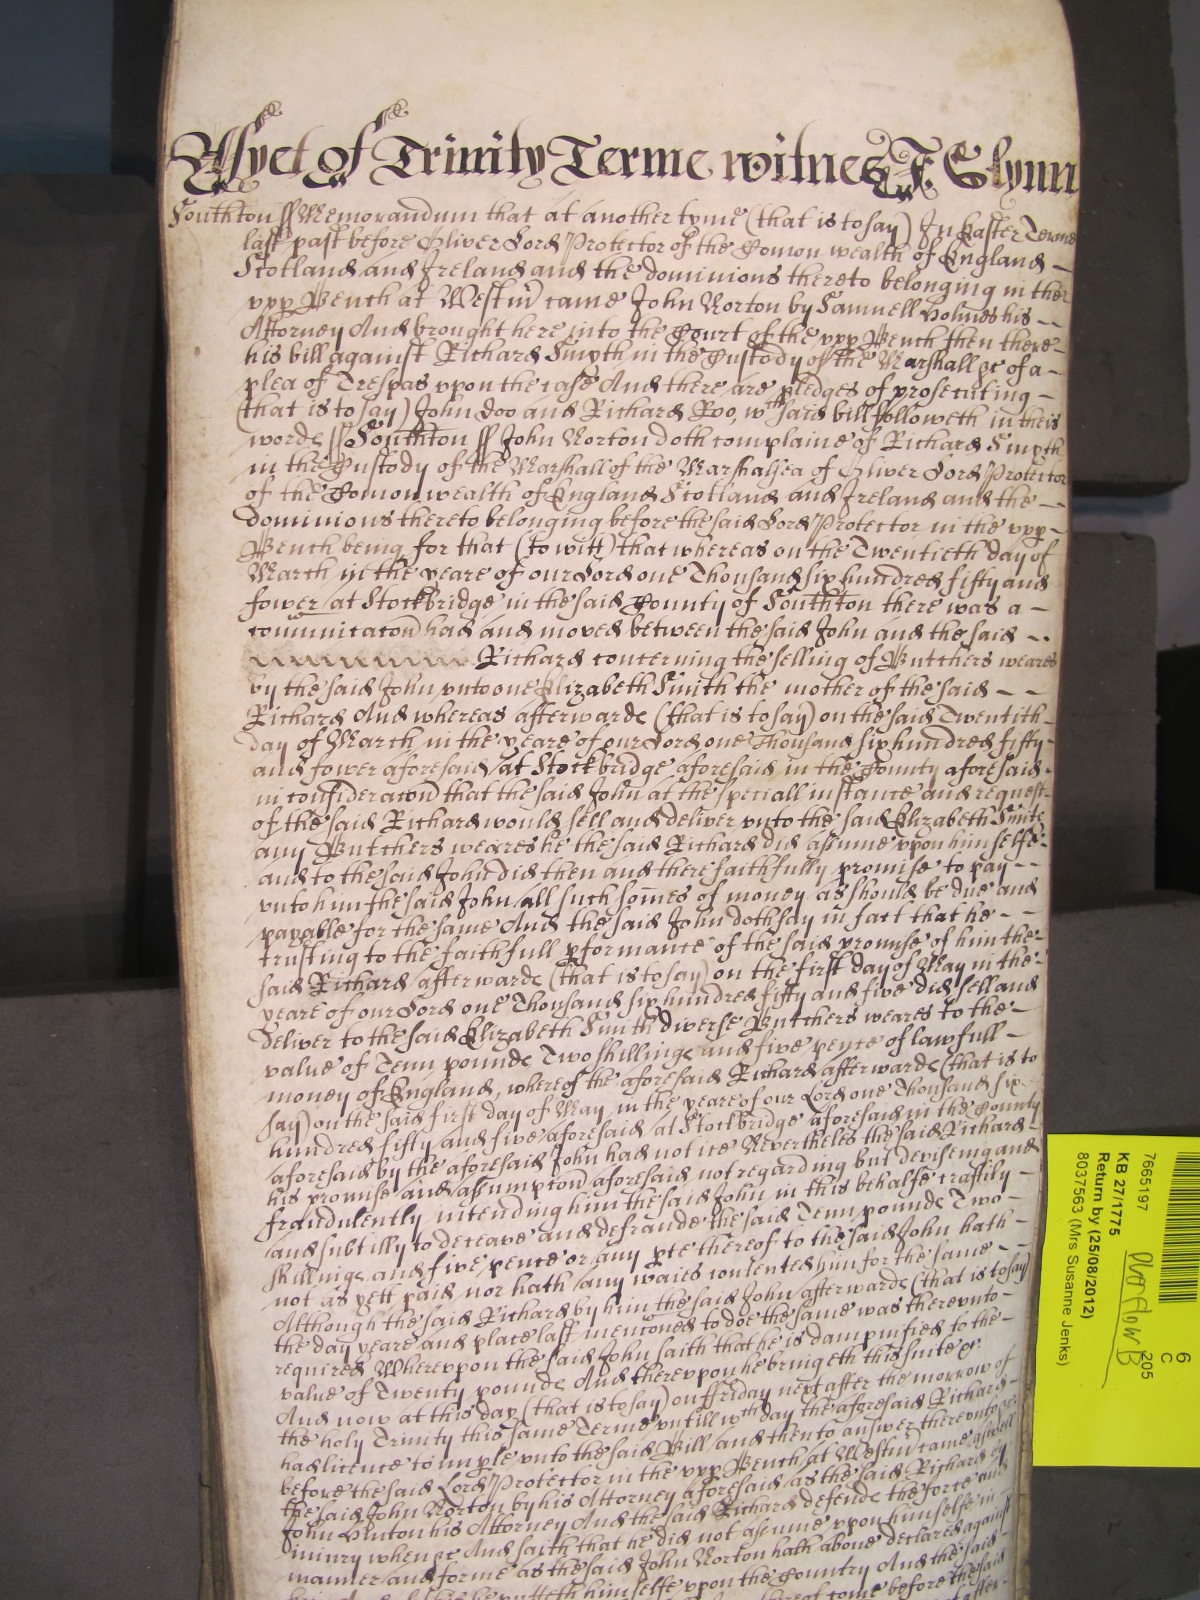 As yet of Trinity Terme witnes J. Glynn
Southton ss Memorandum that at another tyme (that is to say) In Easter Terme
last past before Oliver Lord Protector of the Comon wealth of England –
Scotland and Ireland and the dominions thereto belonging in the
vpp Bench at Westm came John Norton by Samuell Holmes his – –
Attorney And brought here into the Court of the vpp Bench then there –
his bill against Richard Smyth in the Custody of the Marshall &c of a –
plea of Trespas vpon the case And there are pledges of prosecuting –
(that is to say) John Doo and Richard Roo, wch said bill followeth in theis
words ss Southton ss John Norton doth complaine of Richard Smyth
in the Custody of the Marshall of the Marshalsea of Oliver Lord Protector
of the Comon wealth of England Scotland and Ireland and the – –
dominions thereto belonging before the said Lord Protector in the vpp –
Bench being for that (to witt) that whereas on the Twentieth day of
March in the yeare of our Lord one Thousand six hundred fifty and
fower at Stockbridge in the said County of Southton there was a –
communicacon had and moved between the said John and the said – –
Richard concerning the selling of Butchers weares
by the said John vnto one Elizabeth Smith the mother of the said – –
Richard And whereas afterwards (that is to say) on the said Twentith –
day of March in the yeare of our Lord one Thousand six hundred fifty –
and fower aforesaid at Stockbridge aforesaid in the County aforesaid –
in consideracon that the said John at the speciall instance and request –
of the said Richard would sell and deliver vnto the said Elizabeth Smith
any Butchers weares he the said Richard did assume vpon himselfe –
and to the said John did then and there faithfully promise to pay – –
vnto him the said John all such somes of money as should be due and
payable for the same And the said John doth say in fact that he – –
trusting to the faithfull pformance of the said promise of him the –
said Richard afterwards (that is to say) on the first day of May in the –
yeare of our Lord one Thousand six hundred fifty and five did sell and
deliver to the said Elizabeth Smith diverse Butchers weares to the –
value of Tenn pounds Two shillings and five pence of lawfull –
money of England, whereof the aforesaid Richard afterwards (that is to
say) on the said first day of May in the yeare of our Lord one Thousand six –
hundred fifty and five aforesaid at Stockbridge aforesaid in the County
aforesaid by the aforesaid John had notice Nevertheles the said Richard –
his promise and assumpcon aforesaid not regarding but deviseing and
fraudulently intending him the said John in this behalfe craftily –
and subtilly to deceave and defraude the said Tenn pounds Two –
shillings and five pence or any pte thereof to the said John hath –
not as yett paid nor hath any waies contented him for the same – –
Although the said Richard by him the said John afterwards (that is to say)
the day yeare and place last mencioned to doe the same was therevnto –
required Wherevpon the said John saith that he is dampnified to the –
value of Twenty pounds And therevpon he bringeth this suite &c
And now at this day (that is to say) on ffriday next after the morrow of
the holy Trinity this same Terme vntill wch day the aforesaid Richard –
had licence to imple vnto the said Bill and then to answer therevnto &c
before the said Lord Protector in the vpp Bench at Westm came aswell
the said John Norton by his Attorney aforesaid as the said Richard by
John Hunton his Attorney And the said Richard defends the force and
iniury when &c And saith that he did not assume vpon himselfe in
manner and forme as the said John Norton hath above declared against
putteth himselfe vpon the Country And the said
come before the said
7665197
KB 27/1775
Return by (25/08/2012)
8037563 (Mrs Susanne Jenks)
Overflow B
6
C
205